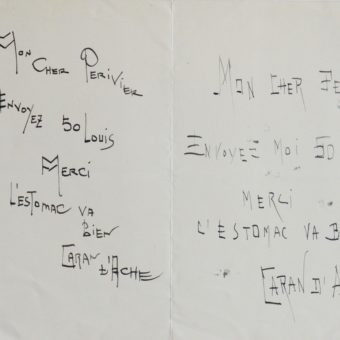 Mon
Cher Perivier
Envoyez 50 Louis
Merci
L'estomac va
Bien
Caran d'Ache
Mon cher
Envoyez moi 50
Merci
L'estomac va B
Caran d'A